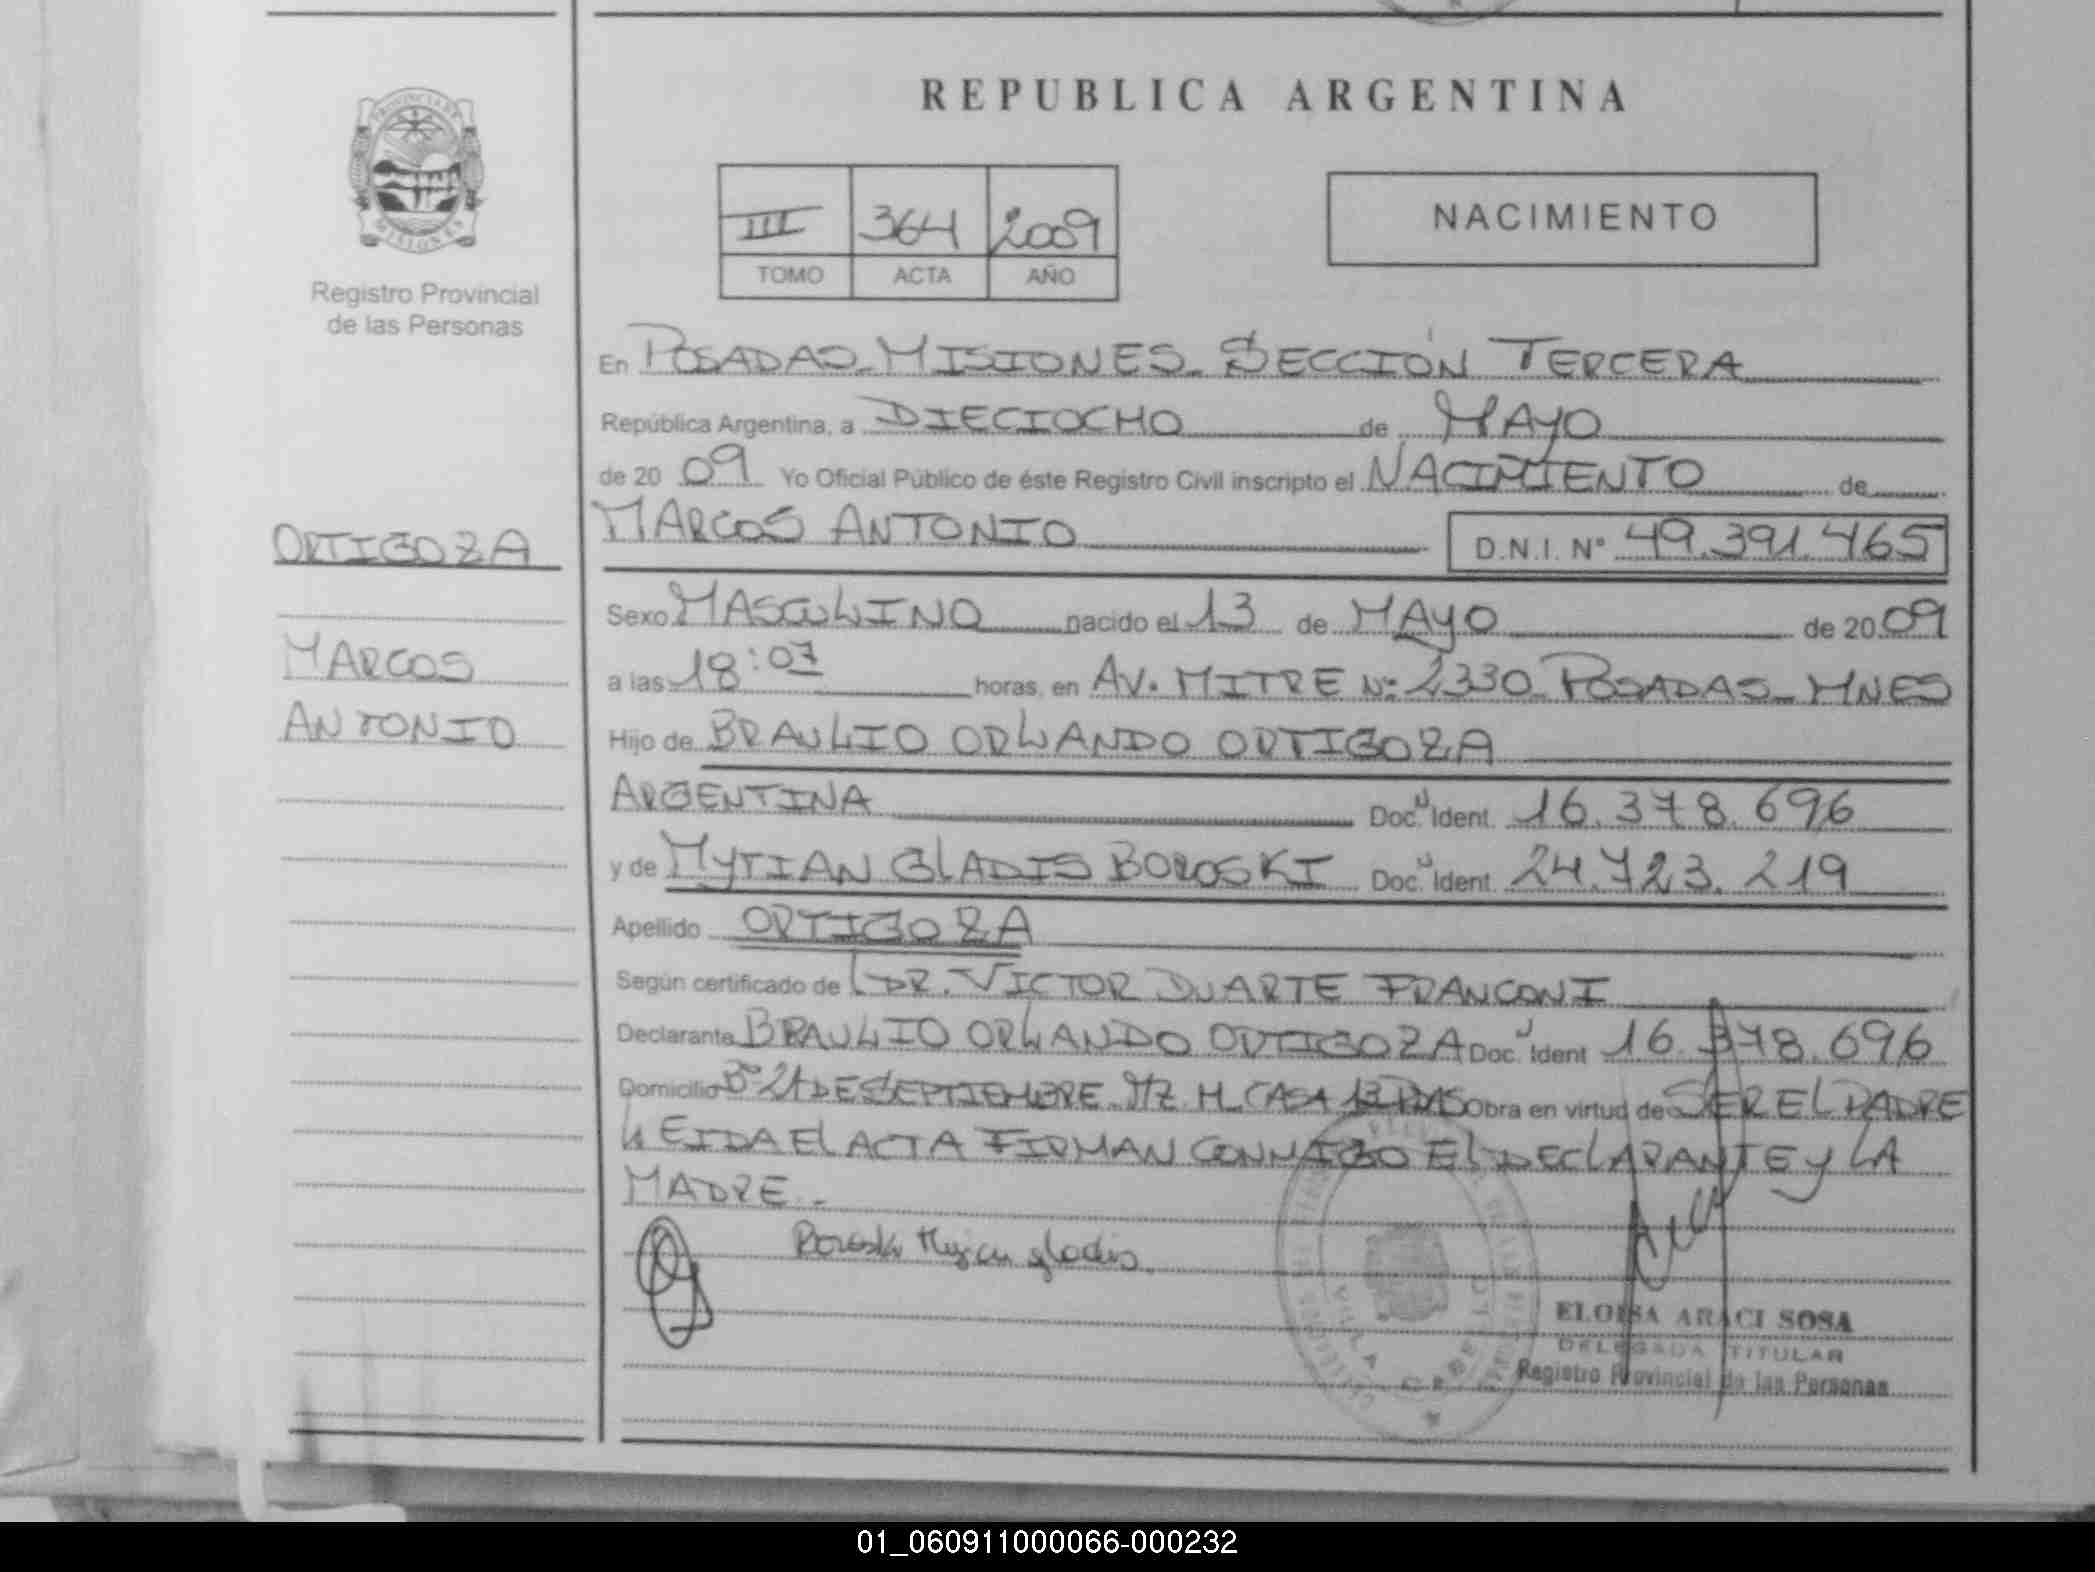 REPUBLICA ARGENTINA
PROVINCIA DE
MISIONES
Registro Provincial
de las Personas
III 364 2009
TOMO ACTA AÑO
NACIMIENTO
En POSADAS_MISIONES_SECCIÓN TERCERA
República Argentina, a DIECIOCHO de MAYO
de 20 09 Yo Oficial Público de éste Registro Civil inscripto el NACIMIENTO de
ORTIGOZA
MARCOS ANTONIO D.N.I. Nº 49.391.465
Sexo MASCULINO nacido el 13 de MAYO de 20 09
MARCOS
a las 18:07 horas, en AV. MITRE Nº 2330_POSADAS_MNES
ANTONIO
Hijo de BRAULIO ORLANDO ORTIGOZA
ARGENTINA Doc. Ident. 16.378.696
y de MYRIAN GLADIS BOROSKI Doc. Ident. 24.723.219
Apellido ORTIGOZA
Según certificado de DR. VICTOR DUARTE FRANCONI
Declarante BRAULIO ORLANDO ORTIGOZA Doc. Ident 16.378.696
Domicilio Bº 21 DE SEPTIEMBRE MZ H CASA 13 Obra en virtud de SER EL PADRE
LEIDA EL ACTA FIRMAN CONMIGO EL DECLARANTE Y LA
MADRE._
gladis
ELOISA ARACI SOSA
DELEGADA TITULAR
Registro Provincial de las Personas
VILLA CABELLO
01_060911000066-000232